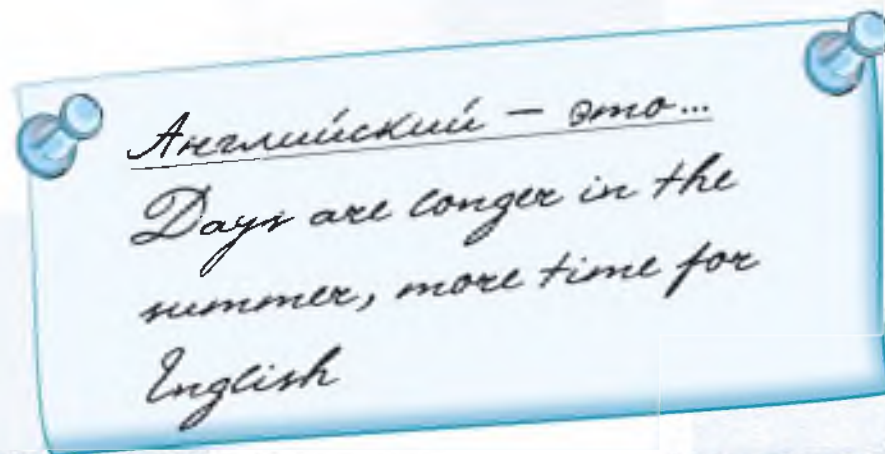 Английский – это...
Days are longer in the
summer, more time for
English